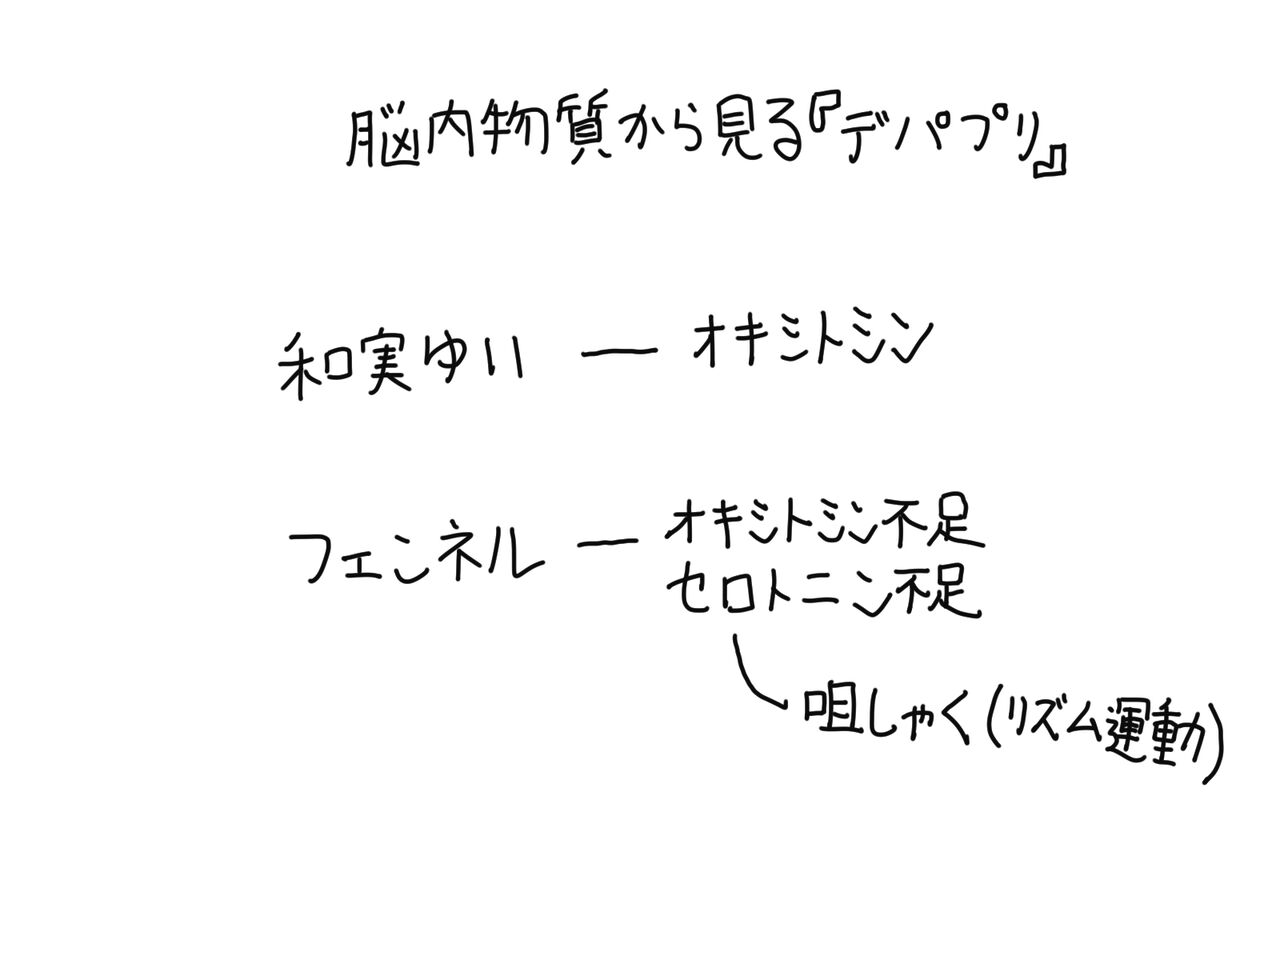 脳内物質から見る『デパプリ』
和実ゆい — オキシトシン
フェンネル — オキシトシン不足
セロトニン不足
咀しゃく(リズム運動)